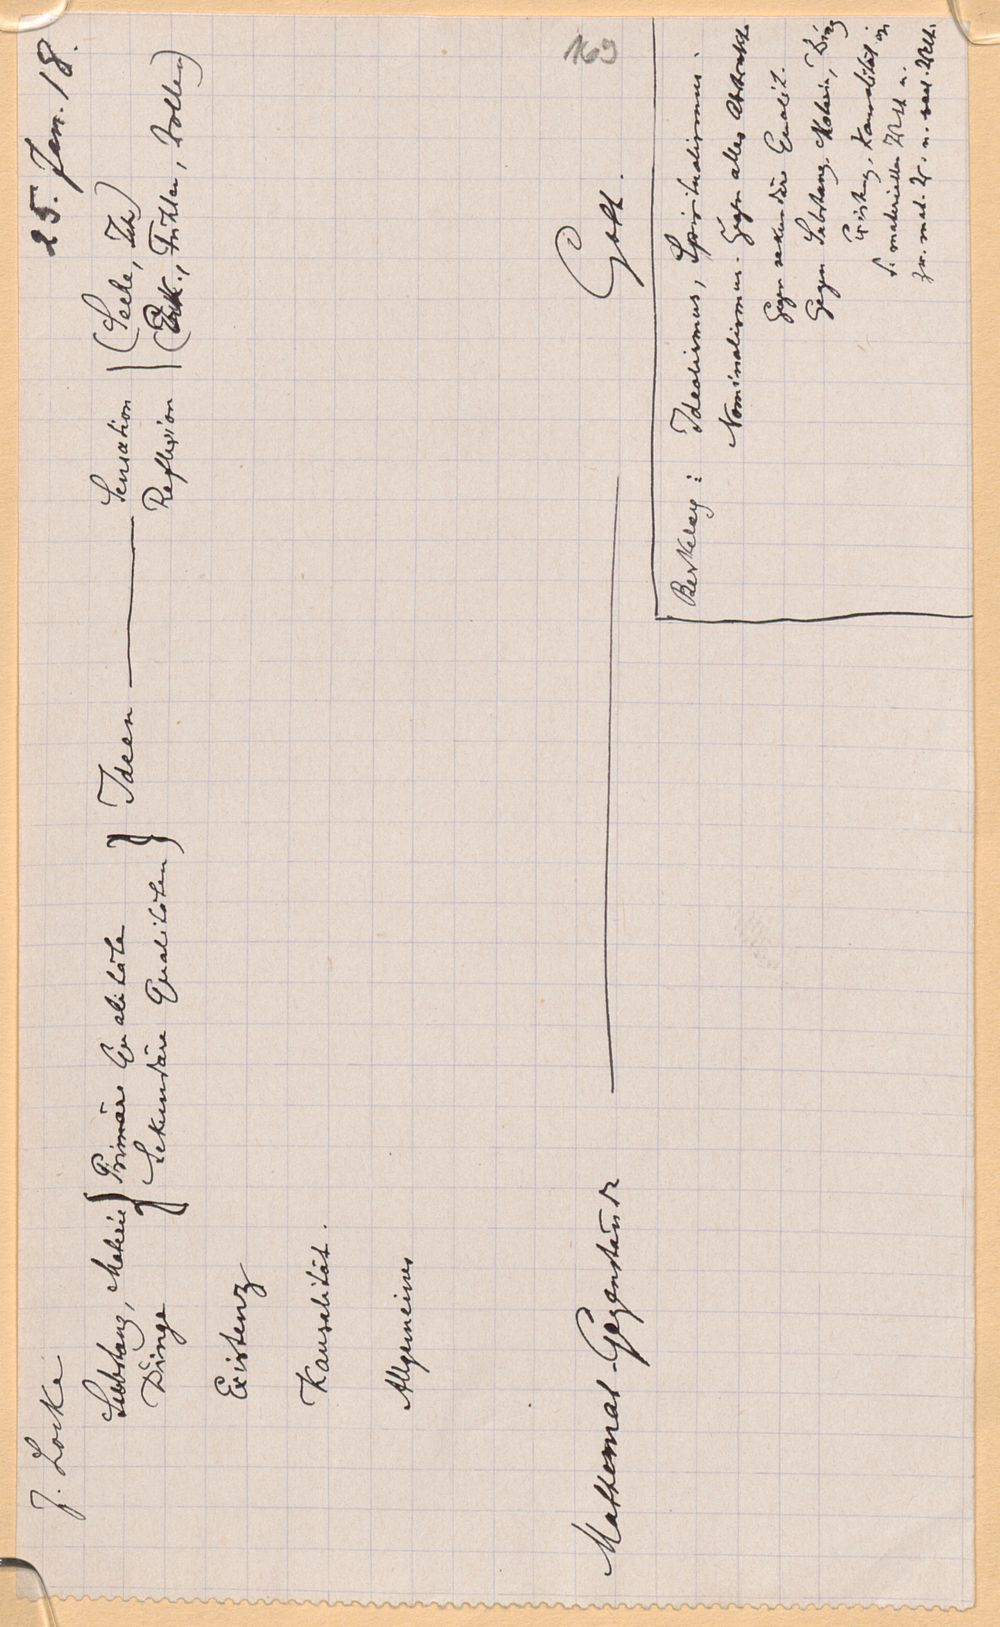 J. Locke 25. Jan. 18.
Substanz, Materie } Primäre Qualitäte } Ideen — Sensation | (Seele, Ich)
Dinge } Sekundäre Qualitäten } Reflexion | (Fühlen, Wollen)
Existenz
Kausalität.
Allgemeines
Mathemat. Gegenstände — Gott.
169
Berkeley: Idealismus, Spiritualismus.
Nominalismus. Gegen alles Abstrakte
Gegen sekundäre Qualit.
Gegen Substanz. Materie, Ding
Existenz, Kausalität in
d. materiellen Welt u.
zw. mat. W. u. Welt.